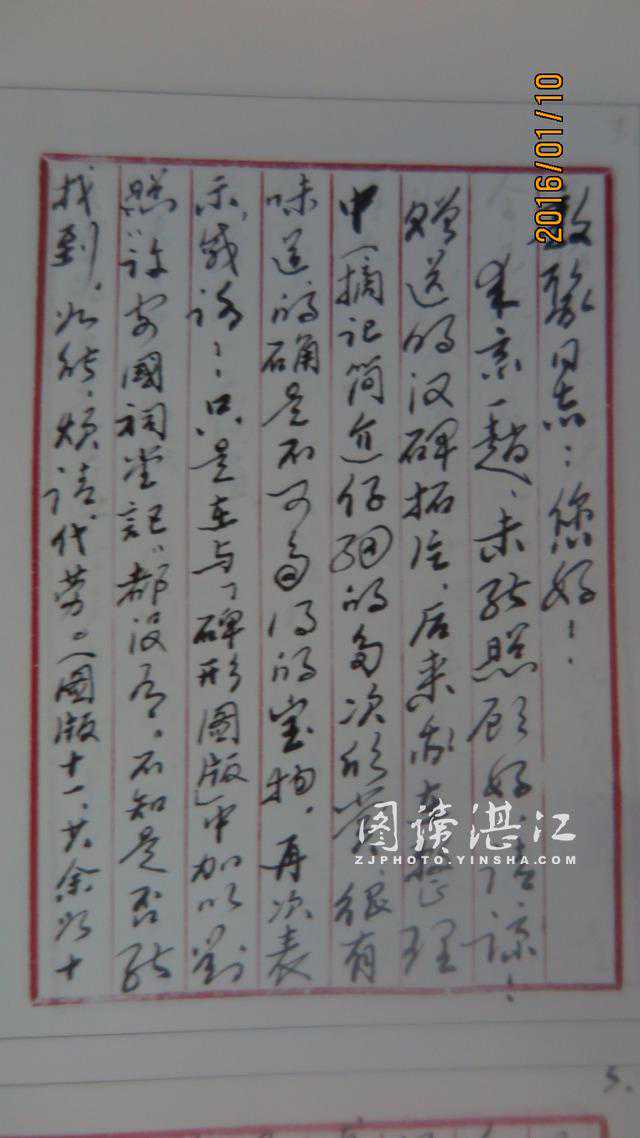 同志：您好！
来京一趟，未能照顾好，请谅！
赠送的汉碑拓片，后来我在整理
中（摘记简介仔细的多次欣赏，很有
味道的确是不可多得的宝物，再次表
示感谢！只是在与“碑形图版”中加以对
照“许安國祠堂記”都没有。不知是否能
找到，如能，烦请代劳。（图版十一，其余如十
2016/01/10
图读湛江
ZJPHOTO.YINSHA.COM
5.